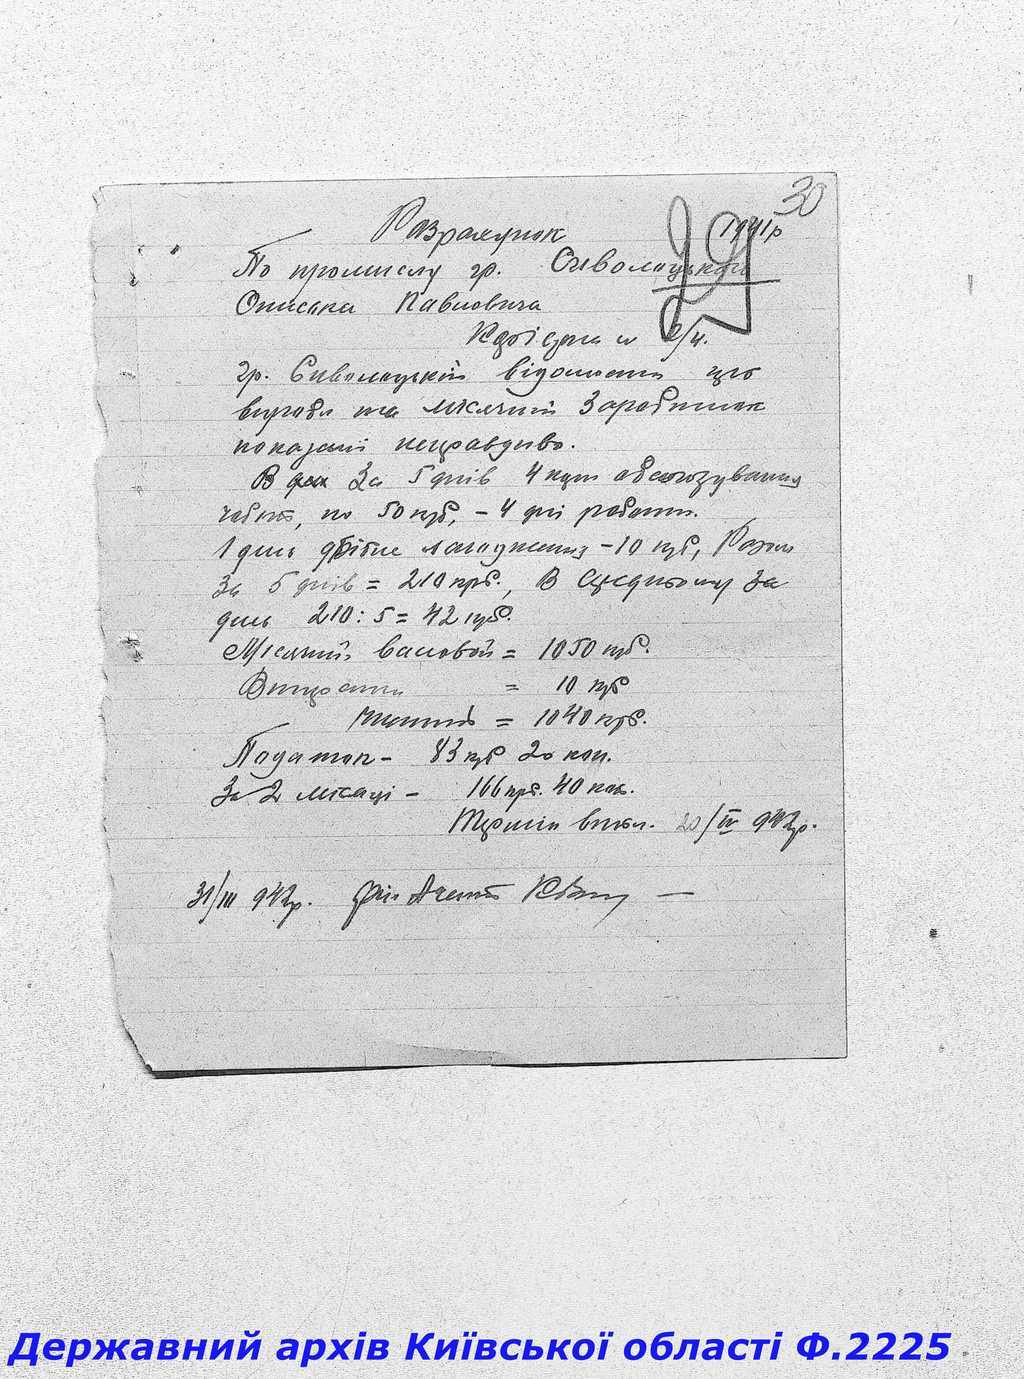 30
29
Розрахунок 1941р
По промислу гр. Сиволоцький
Описька Павловича
гр. Сиволоцький відомости про
вироби та місячний Заробіток
показані неправдиво.
В За 5 днів 4 пари
чобіт, по 50 крб, – 4 дні работи.
1 день дрібне лагодження – 10 крб, Разом
За 5 днів = 210 крб., В Средньому За
день 210 : 5 = 42 крб.
Місячний валовой = 1050 крб.
Витрати = 10 крб
чистий = 1040 крб.
Податок – 83 крб 20 коп.
За 2 місяці – 166 крб. 40 коп.
Термін випл. 20/IV 942р.
31/III 942р. Фін Агент
Державний архів Київської області Ф.2225